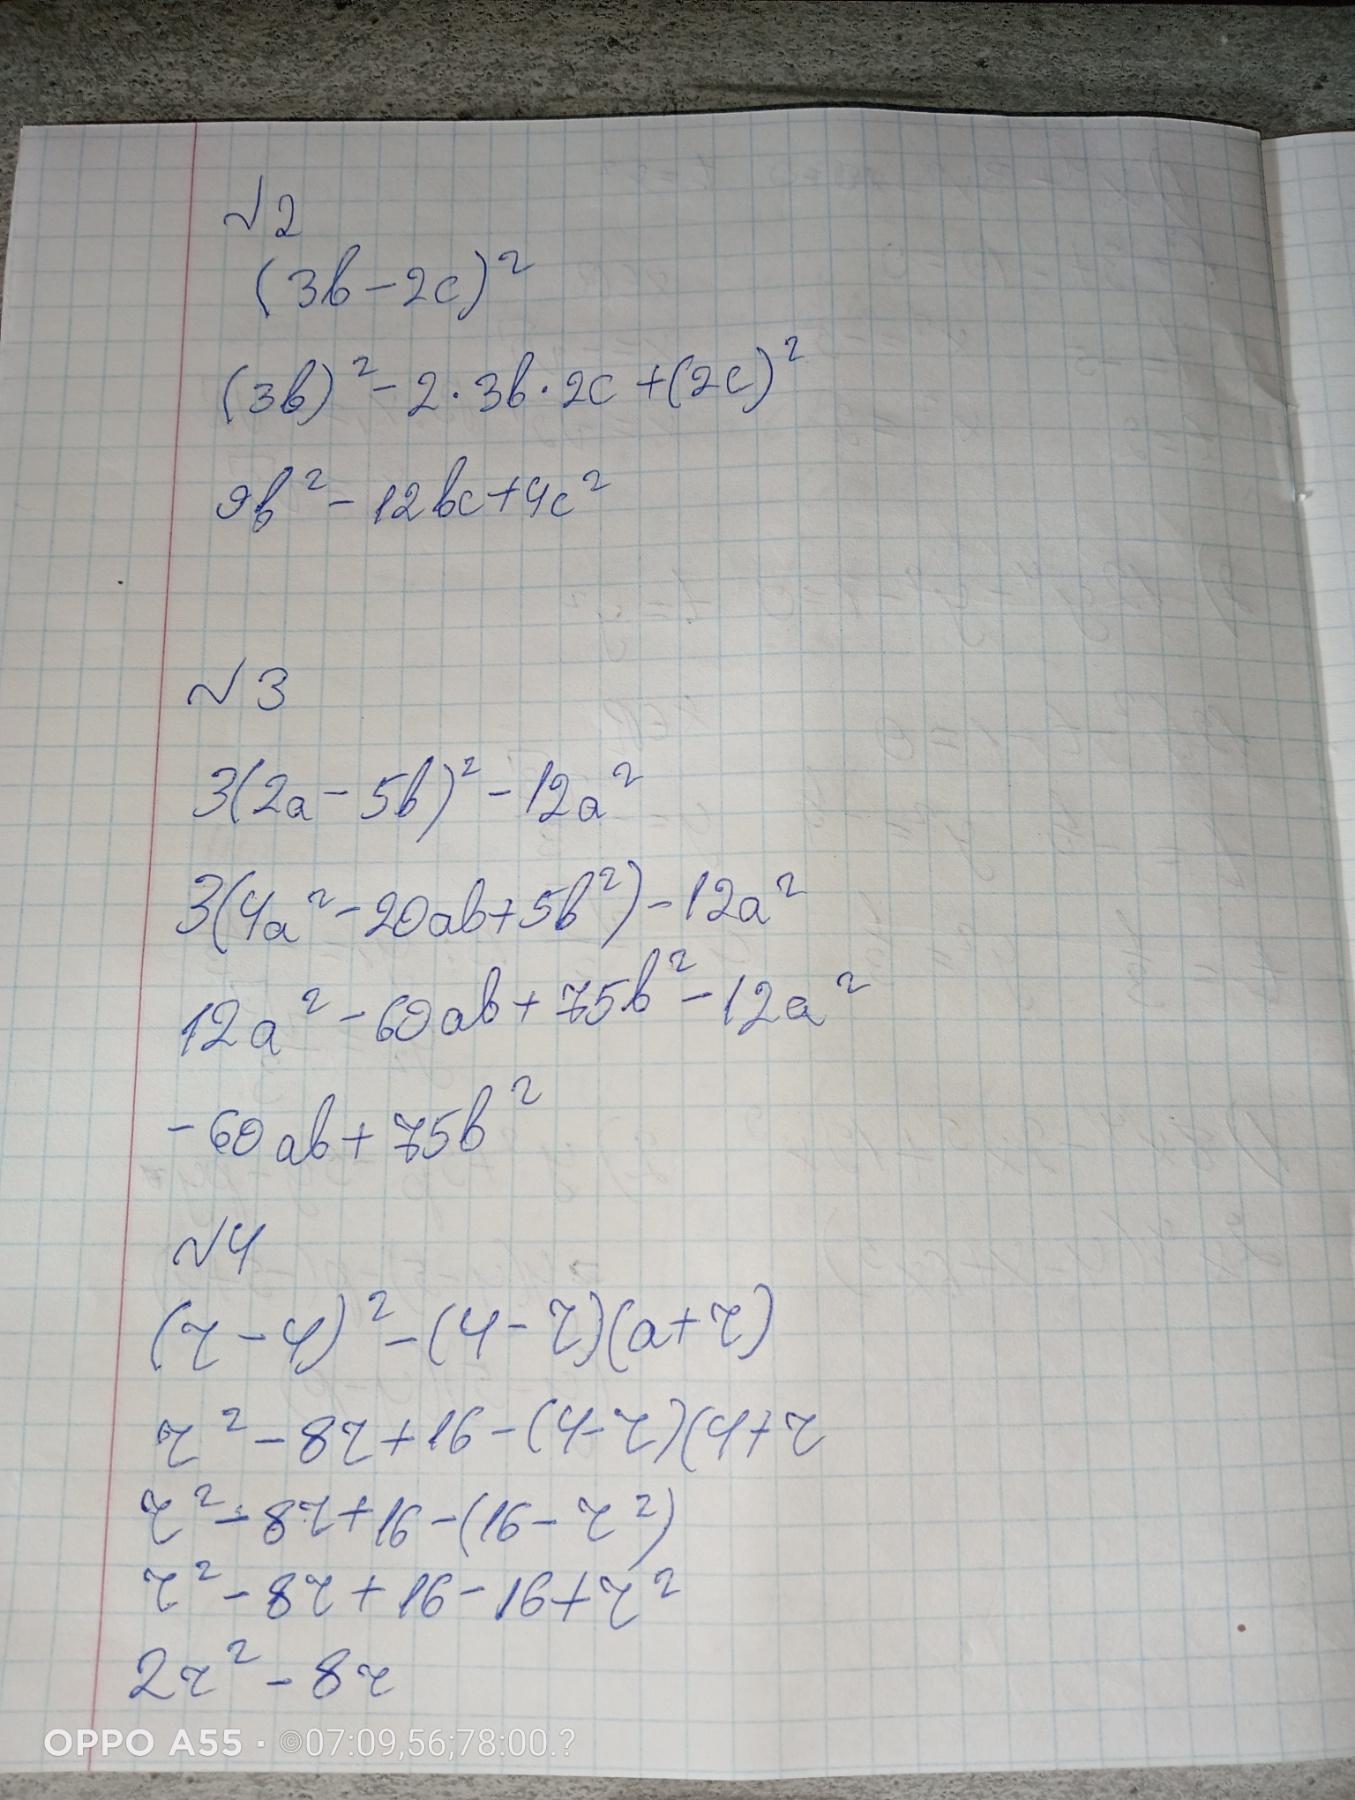 №2
(3b-2c)²
(3b)²-2·3b·2c+(2c)²
9b²-12bc+4c²
№3
3(2a-5b)²-12a²
3(4a²-20ab+5b²)-12a²
12a²-60ab+75b²-12a²
-60ab+75b²
№4
(r-4)²-(4-r)(a+r)
r²-8r+16-(4-r)(4+r
r²-8r+16-(16-r²)
r²-8r+16-16+r²
2r²-8r
OPPO A55 · ©07:09,56;78:00.?